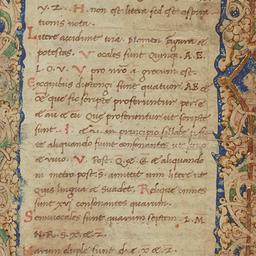 Y. Z. H. non est litera sed est aspira
tionis nota.
Litere accidunt tria Nomen figura et
potestas. Vocales sunt Quinq. A. E.
I. O. V. Y pro nro a grecum est.
Ex quibus diptongi sunt quatuor. AE &
OE que sic scripte proferuntur per se
& au & eu Que proferuntur ut scripte
sunt. I. & u in principio sillabe
& aliquando fiunt consonantes ut
& viuo. V. Post. Q. G & aliquando
in metro post s. amittit vim litere ut
quis lingua & suadet. Relique omnes
sunt XVI consonantes quarum.
Semiuocales sunt quarum septem. L. M
N. R. S. X. & Z.
earum duple sunt. & Z.